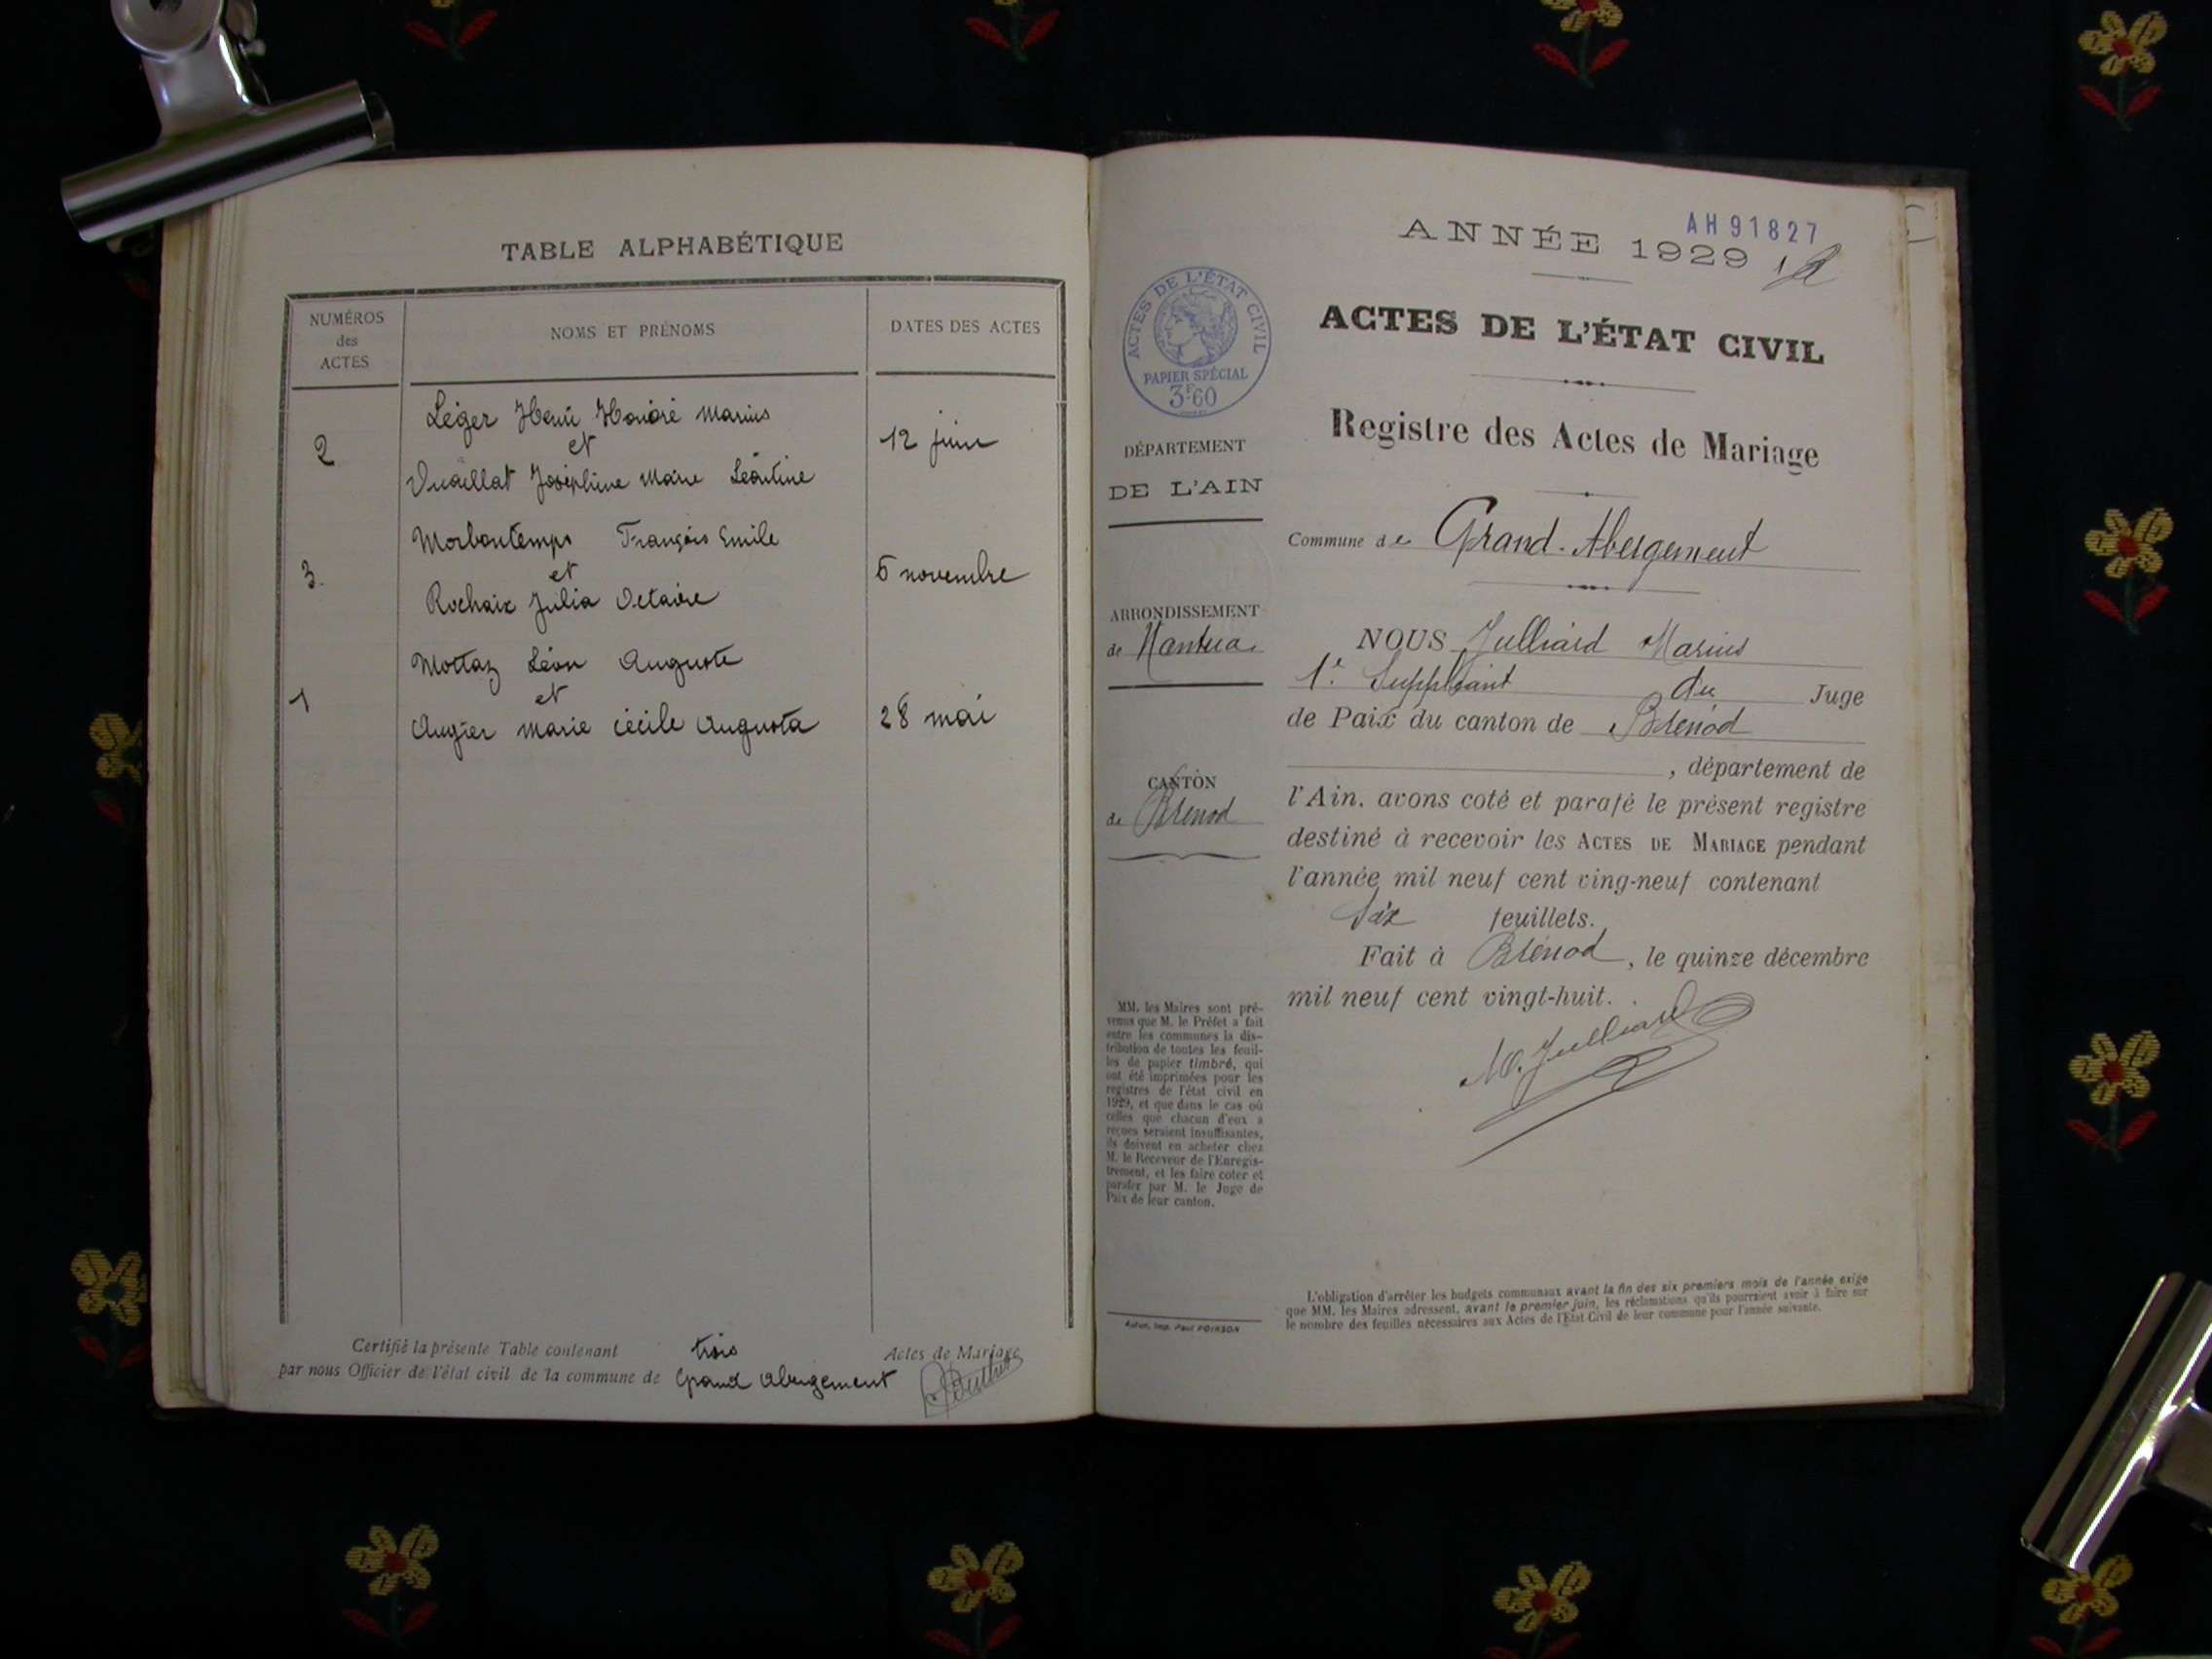 TABLE ALPHABÉTIQUE
NUMÉROS
des
ACTES
NOMS ET PRÉNOMS
DATES DES ACTES
Léger Henri Honoré Marius
et
2
12 juin
Vuaillat Joséphine Marie Léontine
Morbontemps François Emile
3
et
6 novembre
Rochaix Julia Octavie
Mottaz Léon Auguste
1
et
Augier Marie Cécile Augusta
28 mai
Certifié la présente Table contenant trois Actes de Mariage
par nous Officier de l'état civil de la commune de Grand Abergement
AH 91827
ANNÉE 1929
ACTES DE L'ÉTAT CIVIL
PAPIER SPÉCIAL
3F60
ACTES DE L'ÉTAT CIVIL
Registre des Actes de Mariage
DÉPARTEMENT
DE L'AIN
Commune de Grand-Abergement
ARRONDISSEMENT
de Nantua
CANTON
de Brénod
NOUS Julliard Marius
1er Suppléant du Juge
de Paix du canton de Brénod
, département de
l'Ain, avons coté et parafé le présent registre
destiné à recevoir les ACTES DE MARIAGE pendant
l'année mil neuf cent ving-neuf contenant
Six feuillets.
Fait à Brénod, le quinze décembre
mil neuf cent vingt-huit.
M. Julliard
MM. les Maires sont pré-
venus que M. le Préfet a fait
entre les communes la dis-
tribution de toutes les feuil-
les de papier timbré, qui
ont été imprimées pour les
registres de l'état civil en
1929, et que dans le cas où
celles que chacun d'eux a
reçues seraient insuffisantes,
ils doivent en acheter chez
M. le Receveur de l'Enregis-
trement, et les faire coter et
parafer par M. le Juge de
Paix de leur canton.
L'obligation d'arrêter les budgets communaux avant la fin des six premiers mois de l'année exige
que MM. les Maires adressent, avant le premier juin, les réclamations qu'ils pourraient avoir à faire sur
le nombre des feuilles nécessaires aux Actes de l'État Civil de leur commune pour l'année suivante.
Imp. Paul POIRSON